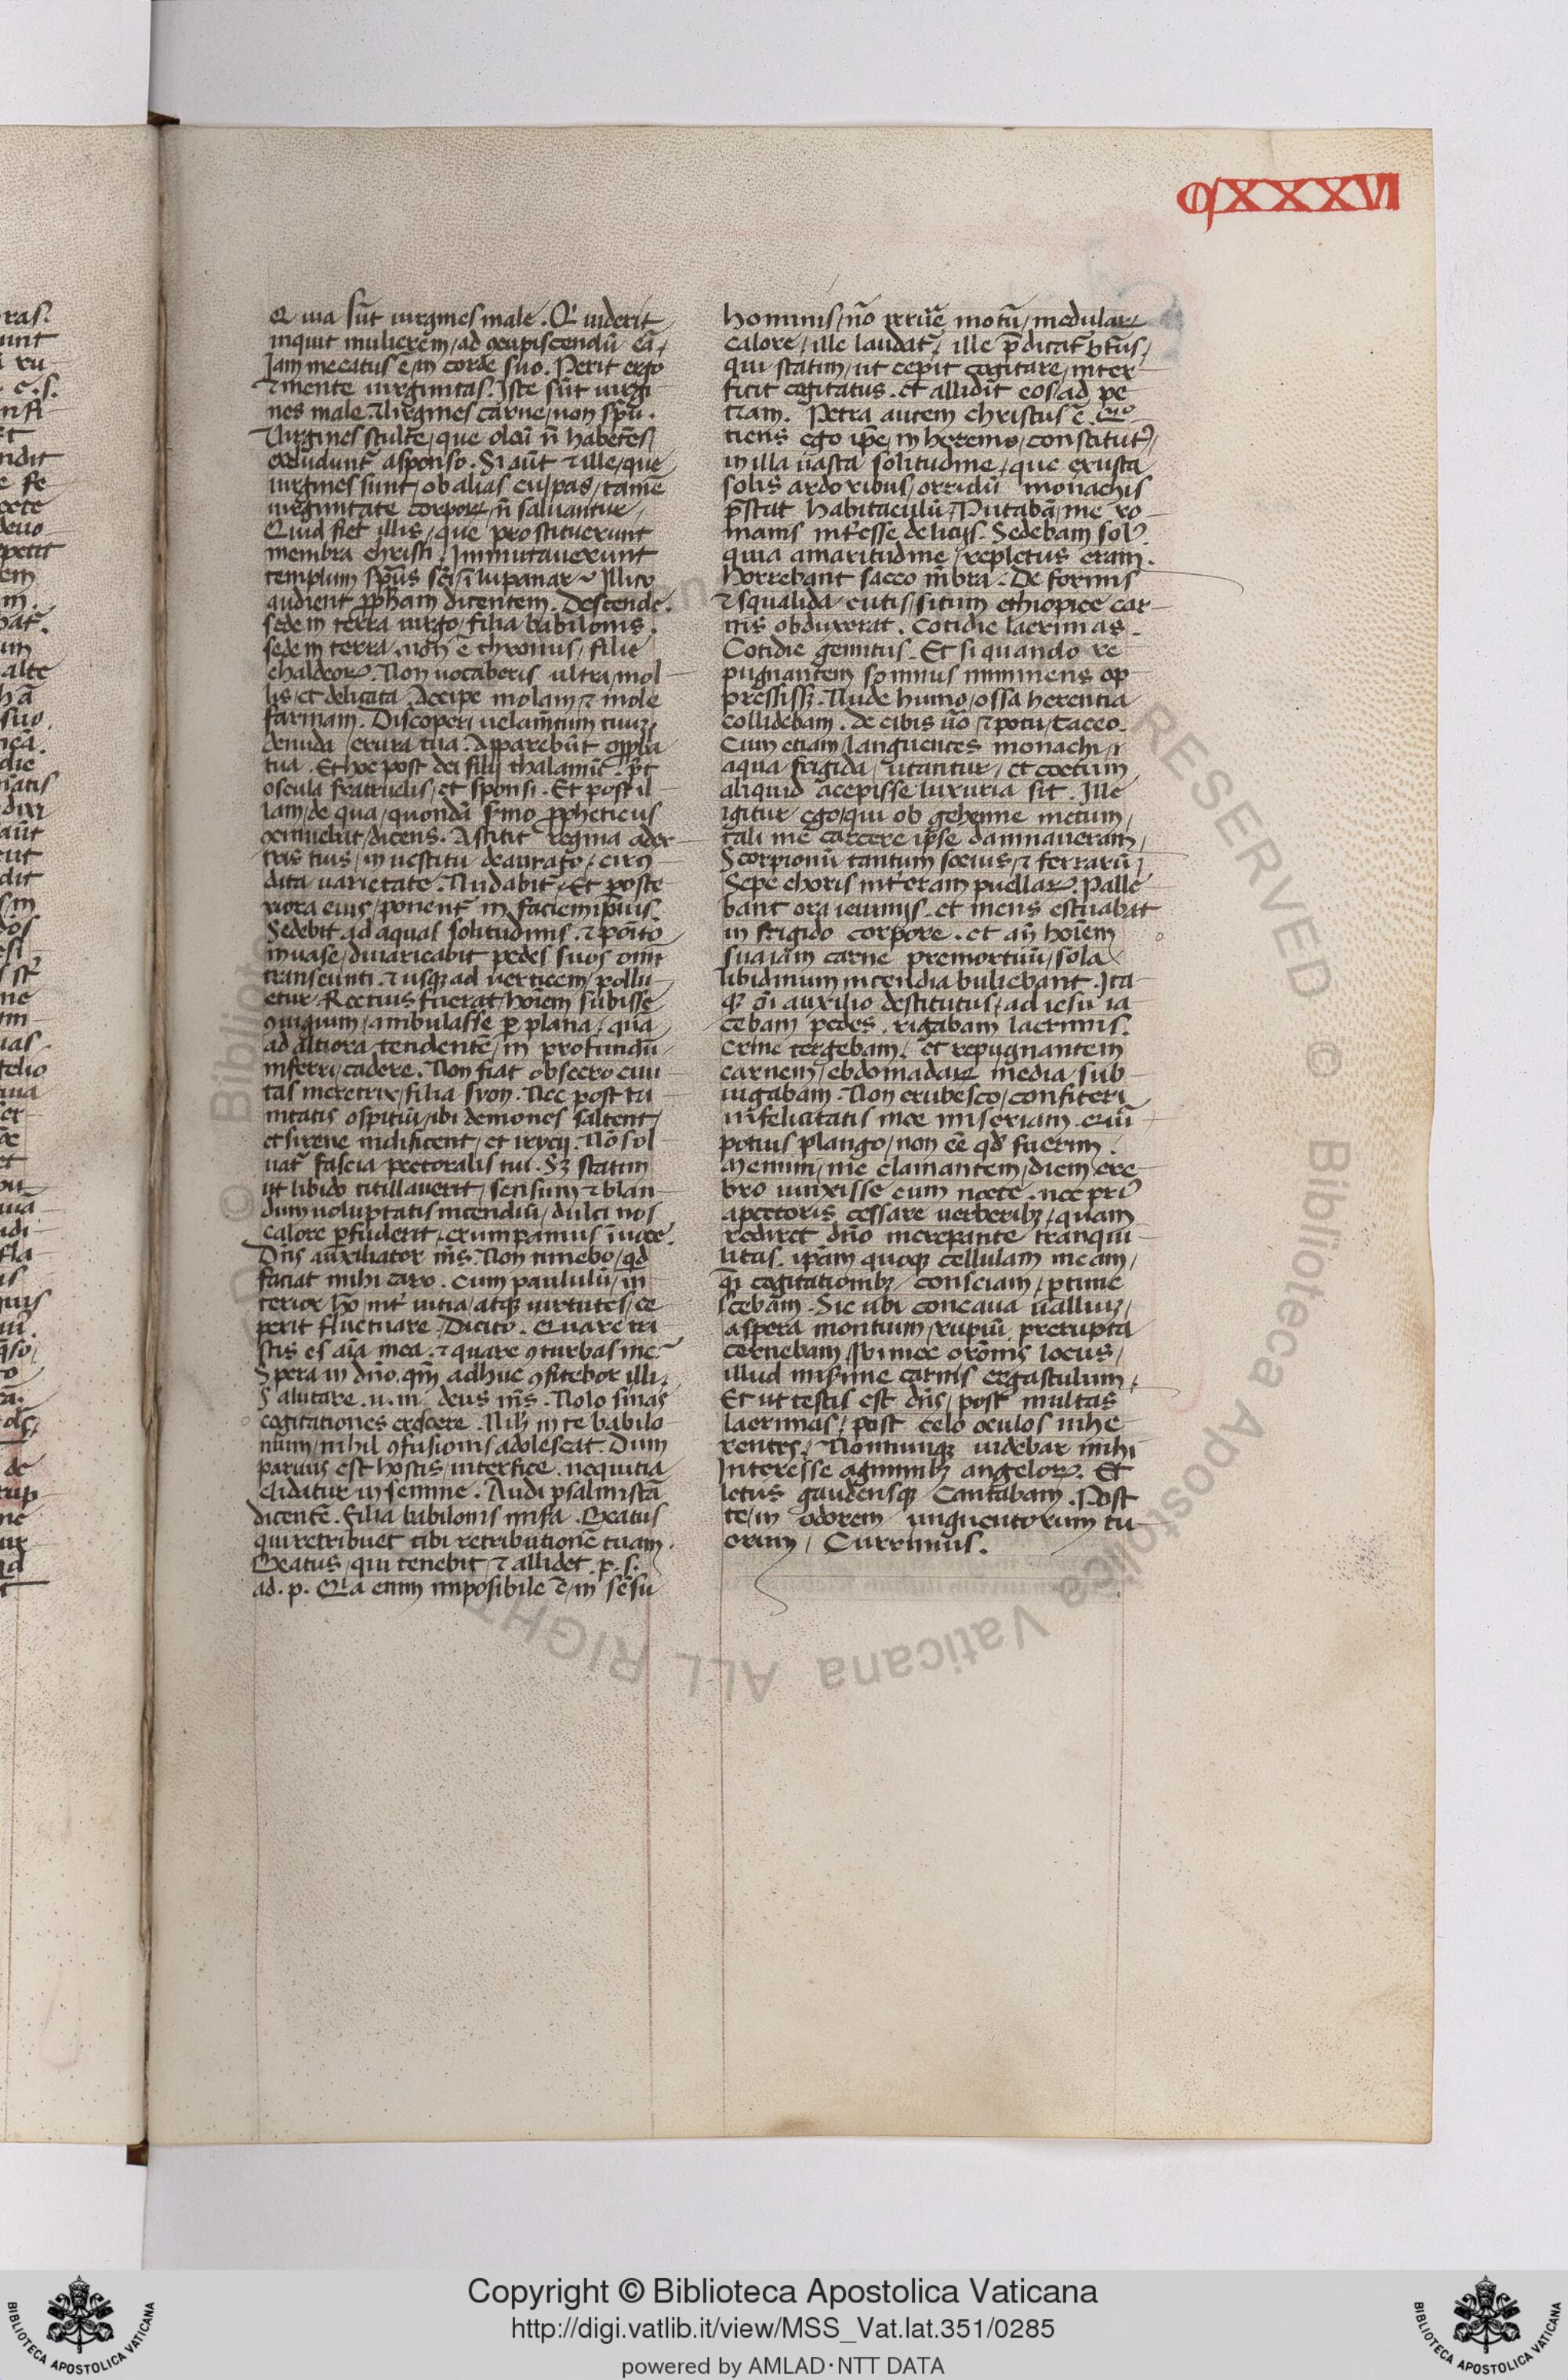 CXXXVI
Quia sūt uirgines male. Qͥ uiderit
inquit mulierem/ad ꝯcupiscendū eā/
Jam mecatus ē/in corde suo. Perit ergo
⁊ mente uirginitas. Iste sūt uirgi
nes male. Uirgines carne/non spū.
Uirgines stulte/que oleū n̄ habētes/
excludunt᷑ a sponso. Si aūt ⁊ ille/que
uirgines sunt/ob alias culpas/tamē
uirginitate corpoꝝ/n̄ saluantur/
Quid fiet illis/que prostituerunt
membra christi. Immutauerunt
templum spūs sc̄i ī lupanar. Illico
audient ꝓpham dicentem. Descende.
sede in terra uirgo/filia babilonis.
sede in terra. non ē thronus/filie
chaldeoꝝ. Non uocaberis ultra/mol
lis/et delicata. Accipe molam/⁊ mole
farinam. Discoperi uelam̄tum tuuʒ.
denuda crura tua. Apparebūt oppbͥa
tua. Et hoc post dei filij thalamū. pꝰt
oscula fratruelis/et sponsi. Et post il
lam/de qua/quondā sermo ꝓpheticus
ꝯcinuebat/dicens. Astitit regina a dex
tris tuis/in uestitu deaurato/circū
data uarietate. Nudabit᷑. Et poste
riora eius/ponent᷑ in faciem ip̄ius.
Sedebit ad aquas solitudinis. ⁊ poīto
in uase/diuaricabit pedes suos om̄i
transeunti. ⁊ usqꝫ ad uerticem/pollu
etur. Rectius fuerat/hoīem subisse
ꝯiugium/ambulasse ꝑ plana/quā
ad altiora tendentē/in profundū
inferri/cadere. Non fiat obsecro ciui
tas meretrix/filia syon. Nec post tri
nitatis ospitiū/ibi demones saltent/
et sirene nidificent/et irycij. Nō sol
uat᷑ fascia pectoralis tui. Sʒ statim
ut libido titillauerit/sensum/⁊ blan
dum uoluptatis incendiū/dulci nos
calore ꝑfuderit/erumpamus ī uoce.
Dn̄s auxiliator m̄s. Non timebo/qd
faciat mihi caro. Cum paululū/in
terior hō/int᷑ uitia/atqꝫ uirtutes/ce
perit fluctuare. Dicito. Quare tri
stis es aīa mea. ⁊ quare ꝯturbas me.
Spera in dn̄o. qm̄ adhuc ꝯfitebor illi.
Salutare .u. m. deus m̄s. Nolo sinas
cogitationes crescere. Nihil in te babilo
nium/nihil ꝯfusionis adolescat. Dum
paruus est hostis/interfice. nequitia
elidatur in semine. Audi psalmistā
dicentē. filia babilonis misa. Beatus
qui retribuet tibi retributionē tuam.
Beatus/qui tenebit/⁊ allidet. p. s.
ad. p. Qͥa enim imposibile ē/in sēsu
hominis/nō irruē motū/medulaꝝ
calore/ille laudat᷑/ille p̄dicat᷑ bt̄us/
qui statim/ut cepit cogitare/inter
ficit cogitatus. et allidit eos/ad pe
tram. Petra autem christus ē. Qͦ
tiens ego ip̄e/in heremo/constitutꝰ/
in illa uasta solitudine/que exusta
solis ardoribus/orridū monachis
p̄stat habitaculū. Putabā/me ro
manis int᷑esse delicijs. Sedebam solꝰ.
quia amaritudine/repletus eram.
horrebant sacco m̄bra. De formis
⁊ squalida cutis/situm ethiopice car
nis obduxerat. Cotidie lacrimas.
Cotidie gemitus. Et si quando re
pugnantem somnus imminens op
pressissʒ. Nude humo/ossa herentia
collidebam. de cibis ūo/⁊ potu/taceo.
Cum etiam/languentes monachi/
aqua frigida/utantur/et coctum
aliquid acepisse luxuria sit. Ille
igitur ego/qui ob gehenne metum/
tali me carcere ip̄se damnaueram/
Scorpionū tantum socius/⁊ ferrarū/
Sepe choris int᷑eram puellaꝝ. Palle
bant ora ieiunijs. et mens estuabat
in frigido corpore. et an̄ hoīem
sua iam carne premortuū/sola
libidinum incendia buliebant. Ita
qꝫ oī auxilio destitutus/ad iesu ia
cebam pedes. rigabam lacrimis.
crine tergebam. et repugnantem
carnem/ebdomadaꝝ media sub
iugabam. Non erubesco/confiteri
infelicitatis mee miseriam. quī
potius plango/non eē qd̄ fuerim.
Memini/me clamantem/diem cre
bro iunxisse cum nocte. nec priꝰ
a pectoris cessare uerberibꝫ/quam
rediret dn̄o increpante tranqui
litas. ip̄am quoqꝫ cellulam meam/
q̄i cogitationibꝫ consciam/ꝑtime
scebam. Sic ubi concaua ualliuʒ/
aspera montium/rupiū prerupta
cernebam. Ibi mee orōnis locus/
illud mis᷑ime carnis ergastulum.
Et ut testis est dn̄s/post multas
lacrimas/post celo oculos inhe
rentes. Nonnunqꝫ uidebar mihi
Interesse agminibꝫ angeloꝝ. Et
letus gaudensqꝫ cantabam. Post
te/in odorem unguentorum tu
orum/Currimus.
Copyright © Biblioteca Apostolica Vaticana
http://digi.vatlib.it/view/MSS_Vat.lat.351/0285
powered by AMLAD·NTT DATA
BIBLIOTECA APOSTOLICA VATICANA
BIBLIOTECA APOSTOLICA VATICANA